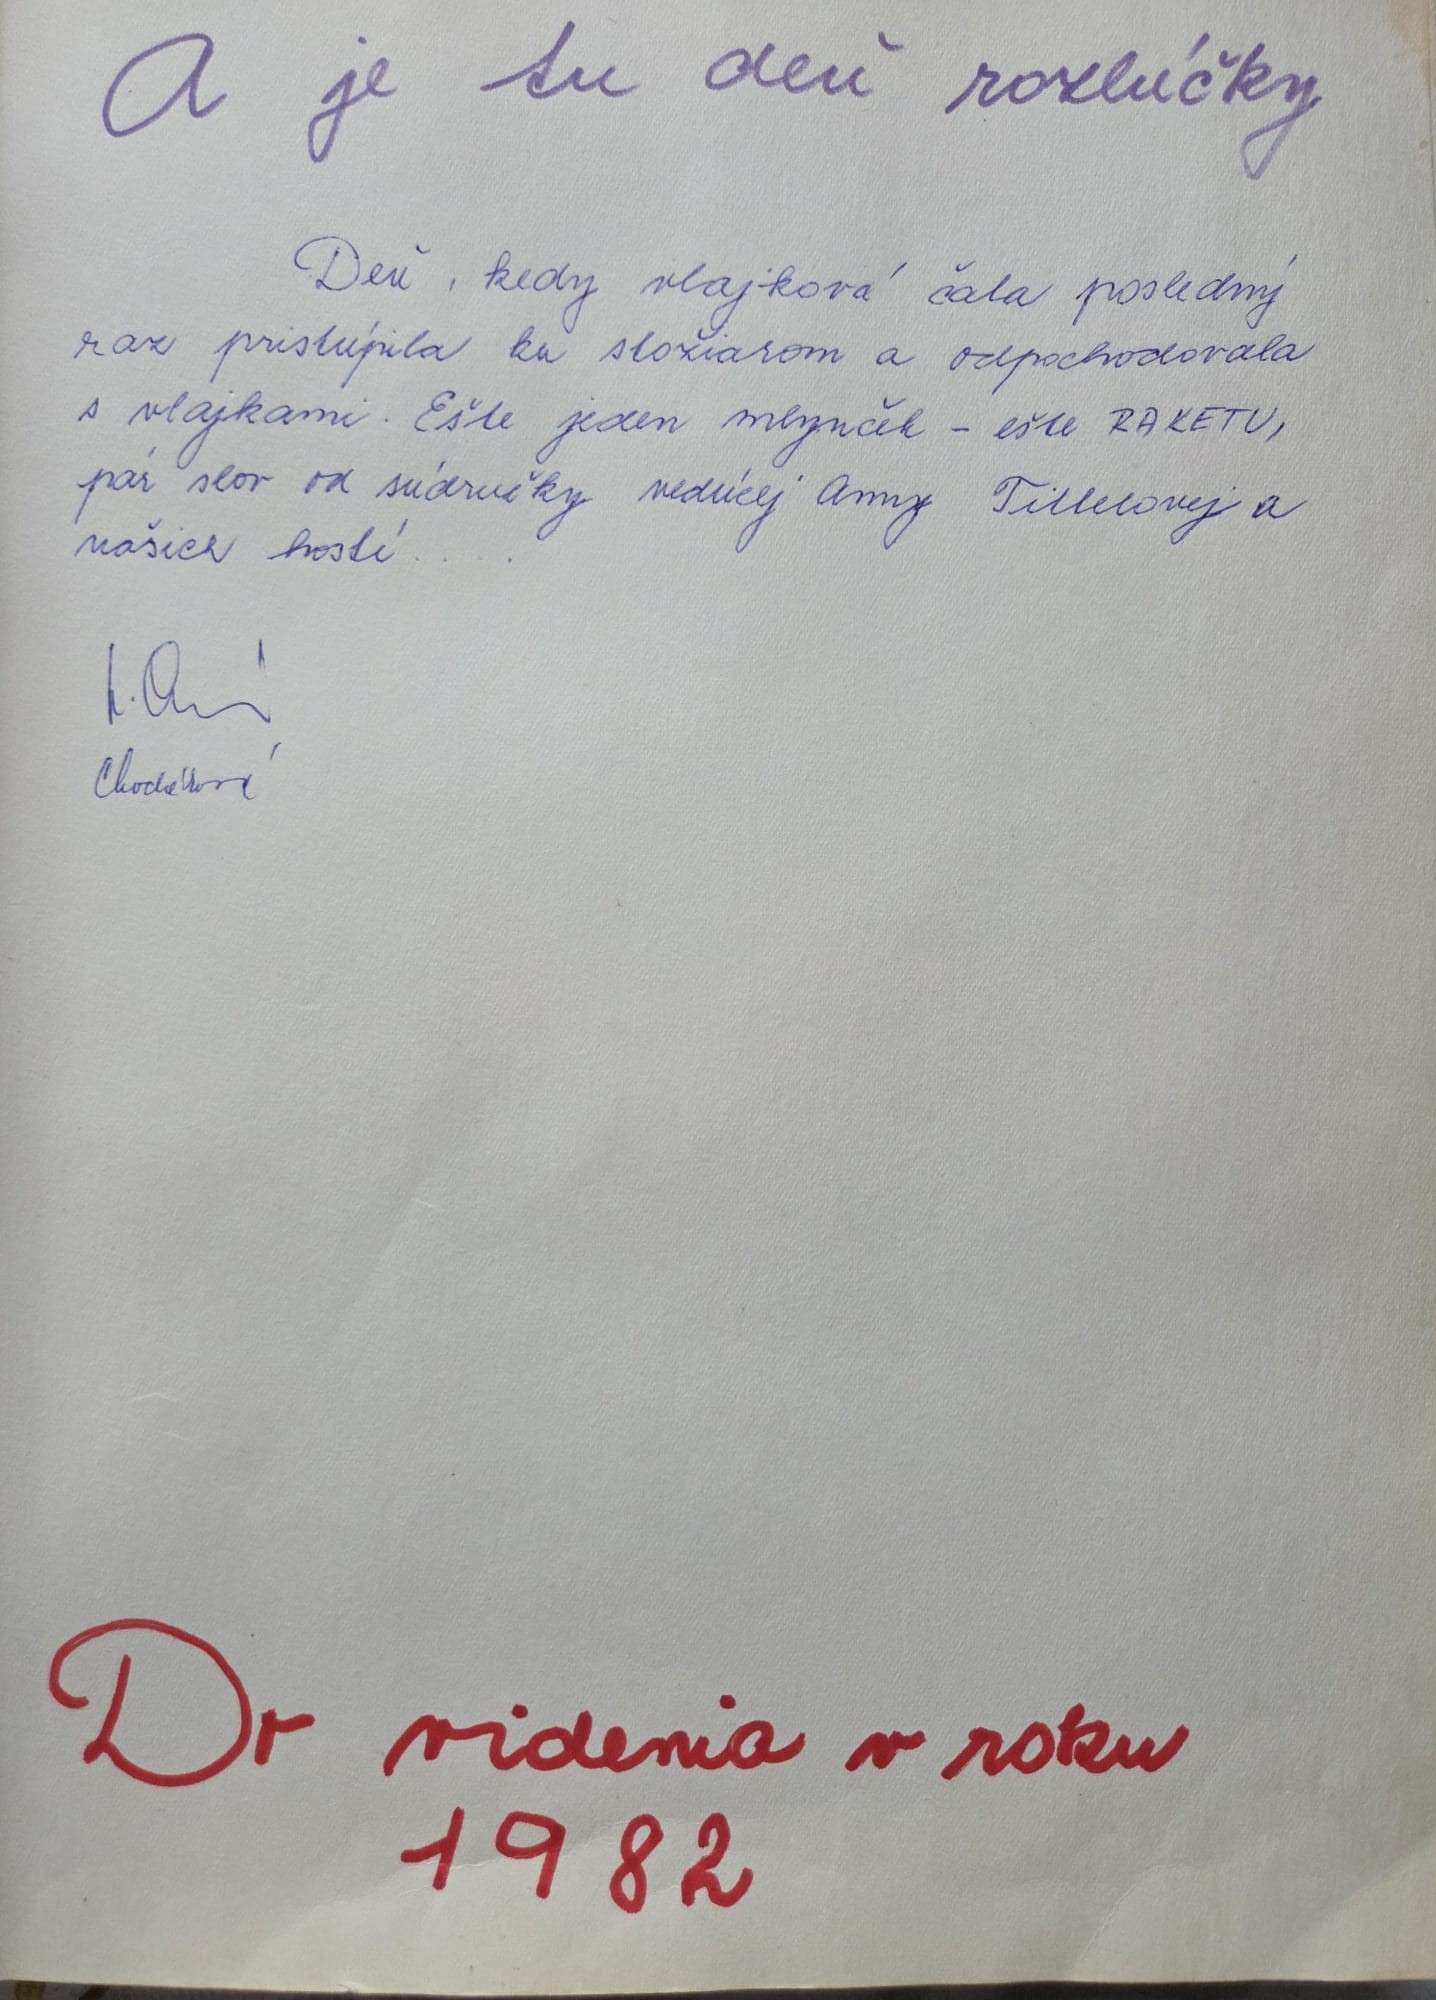 A je tu deň rozlúčky
Deň, kedy vlajková čata posledný
raz pristúpila ku stožiarom a odpochodovala
s vlajkami. Ešte jeden mlynček - ešte RAKETU,
pár slov od súdružky vedúcej Anny a
našich hostí....
Chodáková
Do videnia v roku
1982